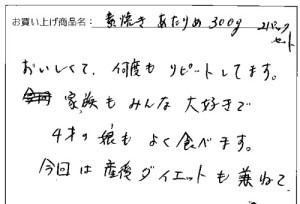 お買い上げ商品名： 素焼き あたりめ 300g 2パック
セット
おいしくて、何度も リピートしてます。
家族も みんな 大好きで
4才の 娘も よく食べます。
今回は 産後ダイエットも 兼ねて